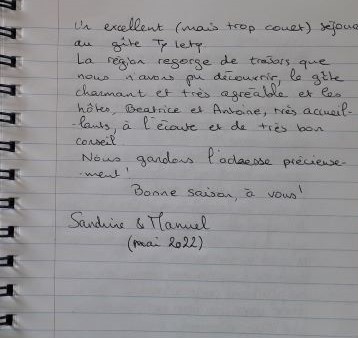 Un excellent (mais trop court) séjour
au gîte Ty Lety.
La région regorge de trésors que
nous n'avons pu découvrir, le gîte
charmant et très agréable et les
hôtes, Beatrice et Antoine, très accueil-
-lants, à l'écoute et de très bon
conseil
Nous gardons l'adresse précieuse-
-ment!
Bonne saison, à vous!
Sandrine & Manuel
(mai 2022)